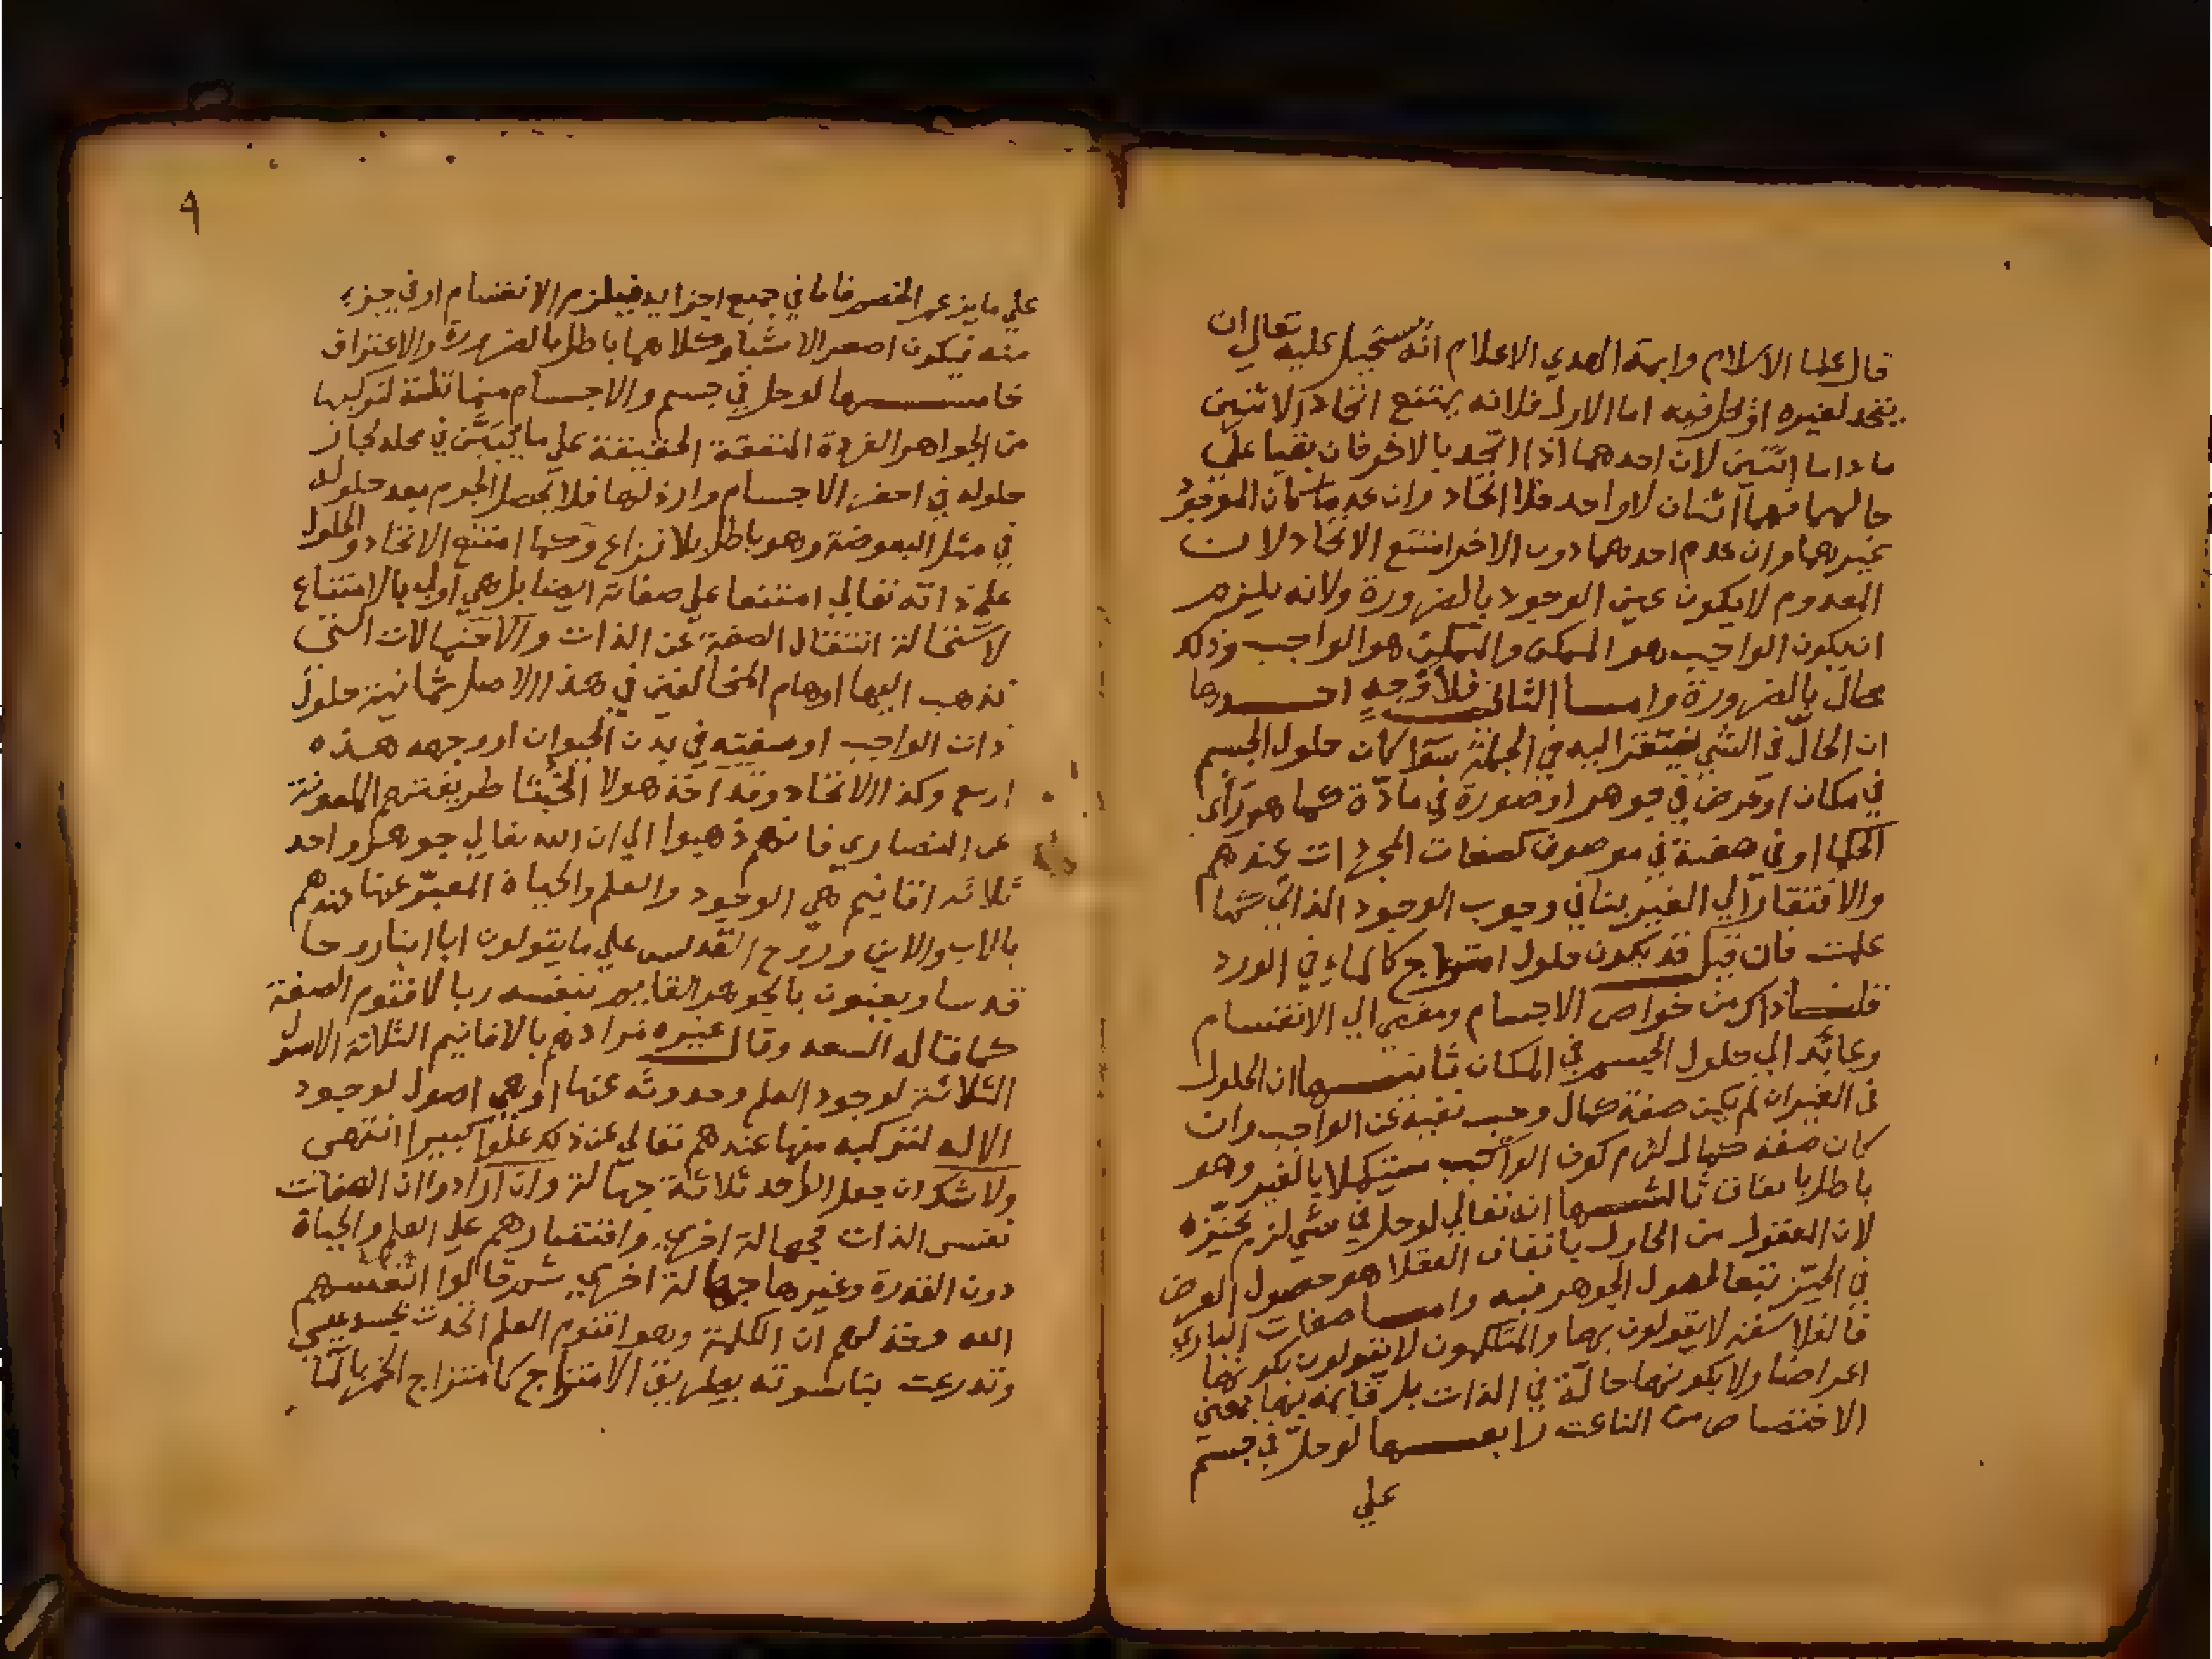 قال علما الاسلام وايمة الهدي الاعلام انه يستحيل عليه تعالي ان
يتحد لغيره او يحل فيه اما الاول فلانه يمتنع اتحاد الاثنين
ما داما اثنين لان احدهما اذا اتحد بالاخر فان بقيا علي
حالهما فهما اثنان لا واحد فلا اتحاد وان عدما كان الموجود
غيرهما وان عدم احدهما دون الاخر امتنع الاتحاد لان
المعدوم لا يكون عين الوجود بالضرورة ولانه يلزم
ان يكون الواجب هو الممكن والممكن هو الواجب وذلك
محال بالضرورة واما الثاني فلاوجه احدها
ان الحال في الشي يفتقر اليه في الجملة سوا كان حلول الجسم
في مكان او عرض في جوهر او صورة في مادة كما هو راي
الحكما او في صفة في موصوف كصفات المجردات عندهم
والافتقار الي الغير ينافي وجوب الوجود الذاتي كما
علمت فان قيل قد يكون حلول امتزاج كالماء في الورد
قلنا ذاك من خواص الاجسام ومفضي الي الانقسام
وعائد الي حلول الجسم في المكان ثانيها ان الحلول
في الغير ان لم يكن صفة كمال وجب نفيه عن الواجب وان
كان صفة كمال لزم كون الواجب مستكملا بالغير وهو
باطل باتفاق ثالثها انه تعالي لو حل في شي لزم تحيزه
لان المعقول من الحلول باتفاق العقلا هو حصول العرض
في الحيز تبعا لحصول الجوهر فيه واما صفات الباري
فالفلاسفة لا يقولون بها والمتكلمون لا يقولون بكونها
اعراضا ولا بكونها حالة في الذات بل قايمة بها بمعني
الاختصاص من الناعت رابعها لو حل في جسم
علي
٩
علي ما يزعم الخصم فاما في جميع اجزايه فيلزم الانقسام او في جزء
منه فيكون اصغر الاشيا وكلاهما باطل بالضرورة والاعتراف
خامسها لو حل في جسم والاجسام متماثلة لتركبها
من الجواهر الفردة المتفقة الحقيقة علي ما يبين في محله لجاز
حلوله في احقر الاجسام وارذلها فلا يحصل الجزم بعدم حلوله
في مثل البعوضة وهو باطل بلا نزاع وكما امتنع الاتحاد والحلول
علي ذاته تعالي امتنعا علي صفاته ايضا بل هي اولي بالامتناع
لاستحالة انتقال الصفة عن الذات والاحتمالات التي
تذهب اليها اوهام المخالفين في هذا الاصل ثمانية حلول
ذات الواجب او صفته في بدن الحيوان او روحه هذه
اربع وكذا الاتحاد وقد اخذ هولا الخبثا طريقتهم الملعونة
عن النصاري فانهم ذهبوا الي ان الله تعالي جوهر واحد
ثلاثة اقانيم هي الوجود والعلم والحياة المعبر عنها عندهم
بالاب والابن وروح القدس علي ما يقولون ابا ابنا روحا
قدسا ويعنون بالجوهر القايم بنفسه وبالاقنوم الصفة
كما قاله السعد وقال غيره مرادهم بالاقانيم الثلاثة الاصول
الثلاثة لوجود العلم وحدوثه عنها او هي اصول لوجود
الاله لتركبه منها عندهم تعالي عن ذلك علوا كبيرا انتهي
ولا شك ان جعل الواحد ثلاثة جهالة وان ارادوا ان الصفات
نفس الذات فجهالة اخري واقتصارهم علي العلم والحياة
دون القدرة وغيرها جهالة اخري ثم قالوا
الله ان الكلمة وهو اقنوم العلم اتحدت بجسد عيسي
وتدرعت بناسوته بطريق الامتزاج كامتزاج الخمر بالما